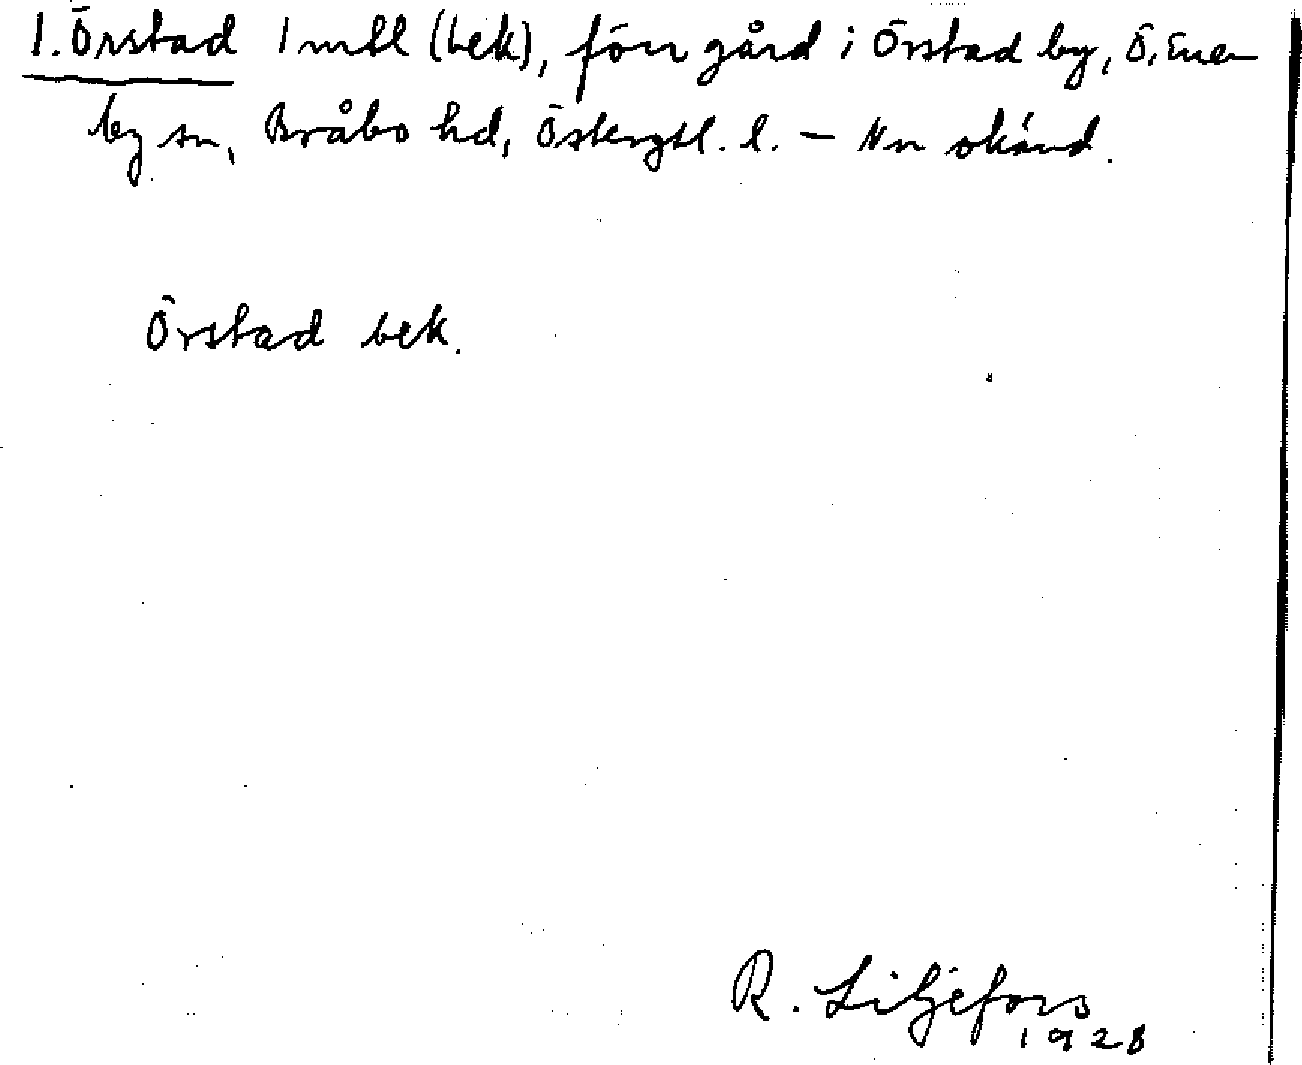 1. Örstad 1 mtl (bek), förr gård i Örstad by, Ö. Ene-
by sn, Bråbo hd, Östergtl. l. — Nu okänd.
Örstad bek.
R. Liljefors
1928